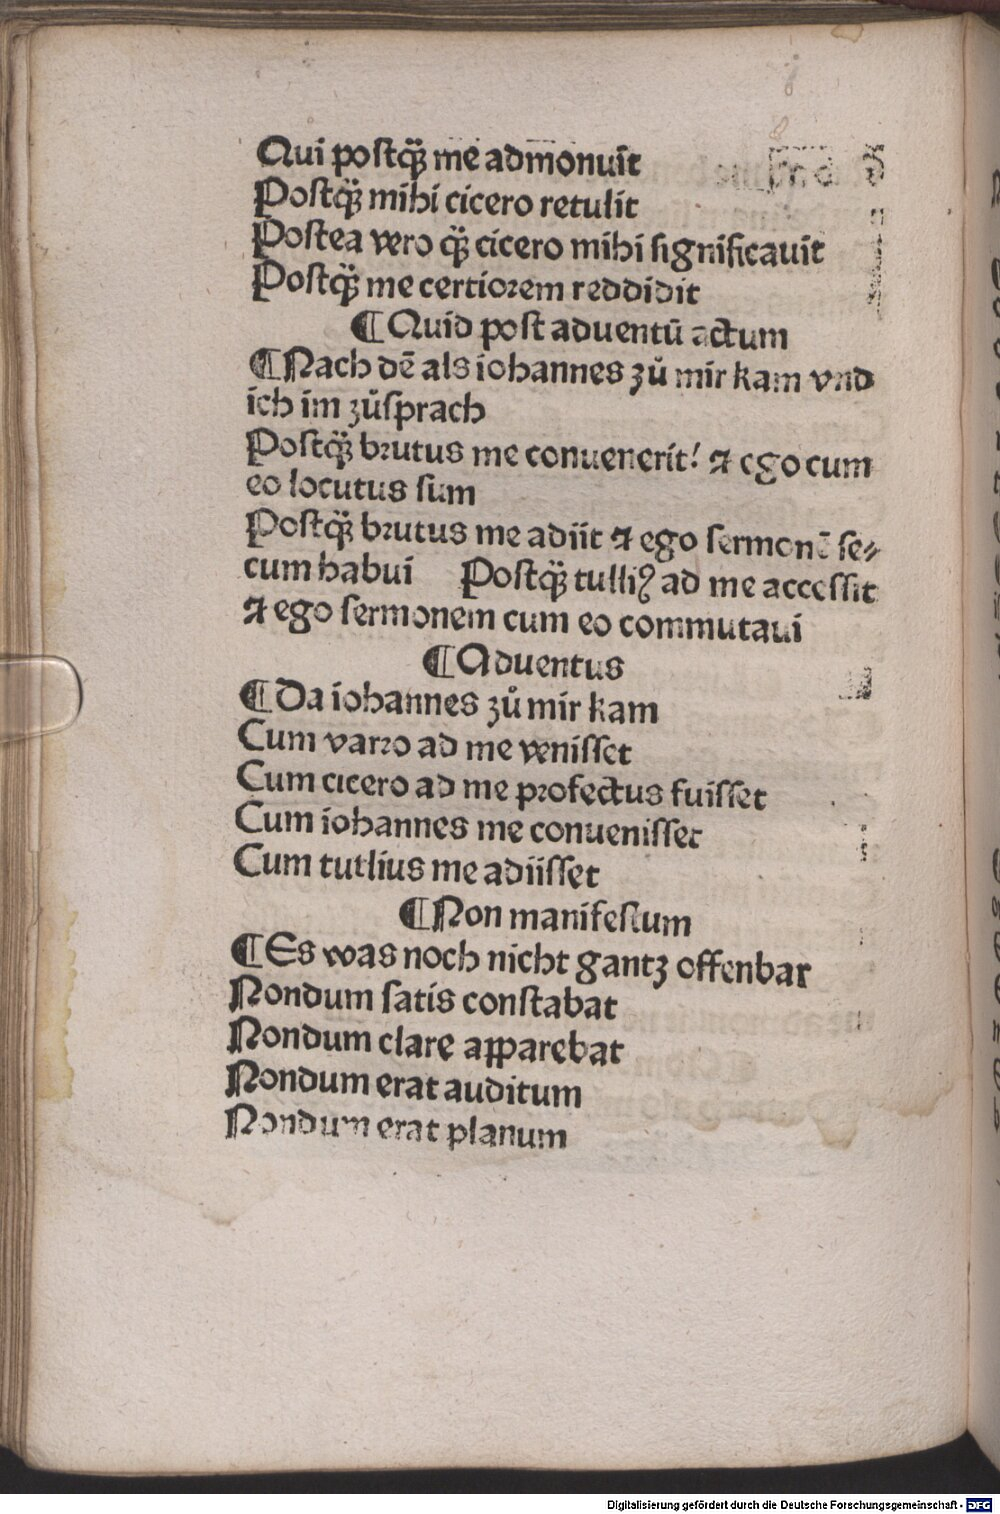 Qui postq̃ me admonuit
Postq̃ mihi cicero retulit
Postea vero q̃ cicero mihi significauit
Postq̃ me certiorem reddidit
¶ Quid post aduentū actum
¶ Nach dē als iohannes zů mir kam vnd
ich im zůsprach
Postq̃ brutus me conuenerit! ⁊ ego cum
eo locutus sum
Postq̃ brutus me adiit ⁊ ego sermonē se⸗
cum habui Postq̃ tulliꝰ ad me accessit
⁊ ego sermonem cum eo commutaui
¶ Aduentus
¶ Da iohannes zů mir kam
Cum varro ad me venisset
Cum cicero ad me profectus fuisset
Cum iohannes me conuenisset
Cum tutlius me adiisset
¶ Non manifestum
¶ Es was noch nicht gantz offenbar
Nondum satis constabat
Nondum clare apparebat
Nondum erat auditum
Nondum erat planum
Digitalisierung gefördert durch die Deutsche Forschungsgemeinschaft - DFG